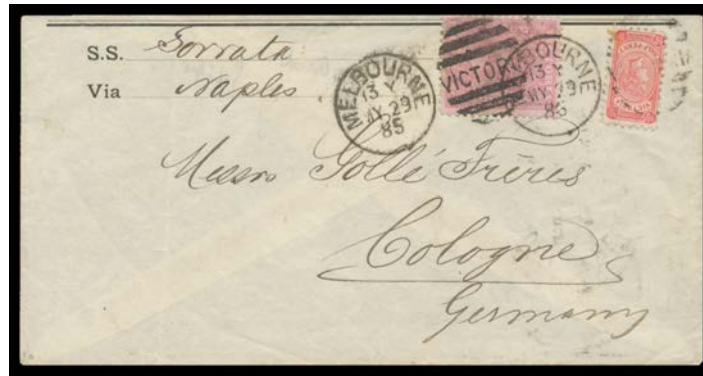 S.S. Sorrata
Via Naples
MELBOURNE
13 Y
MY 29
85
VICTORI
BOURNE
13 Y
MY 29
85
Messrs Gollé Frères
Cologne
Germany